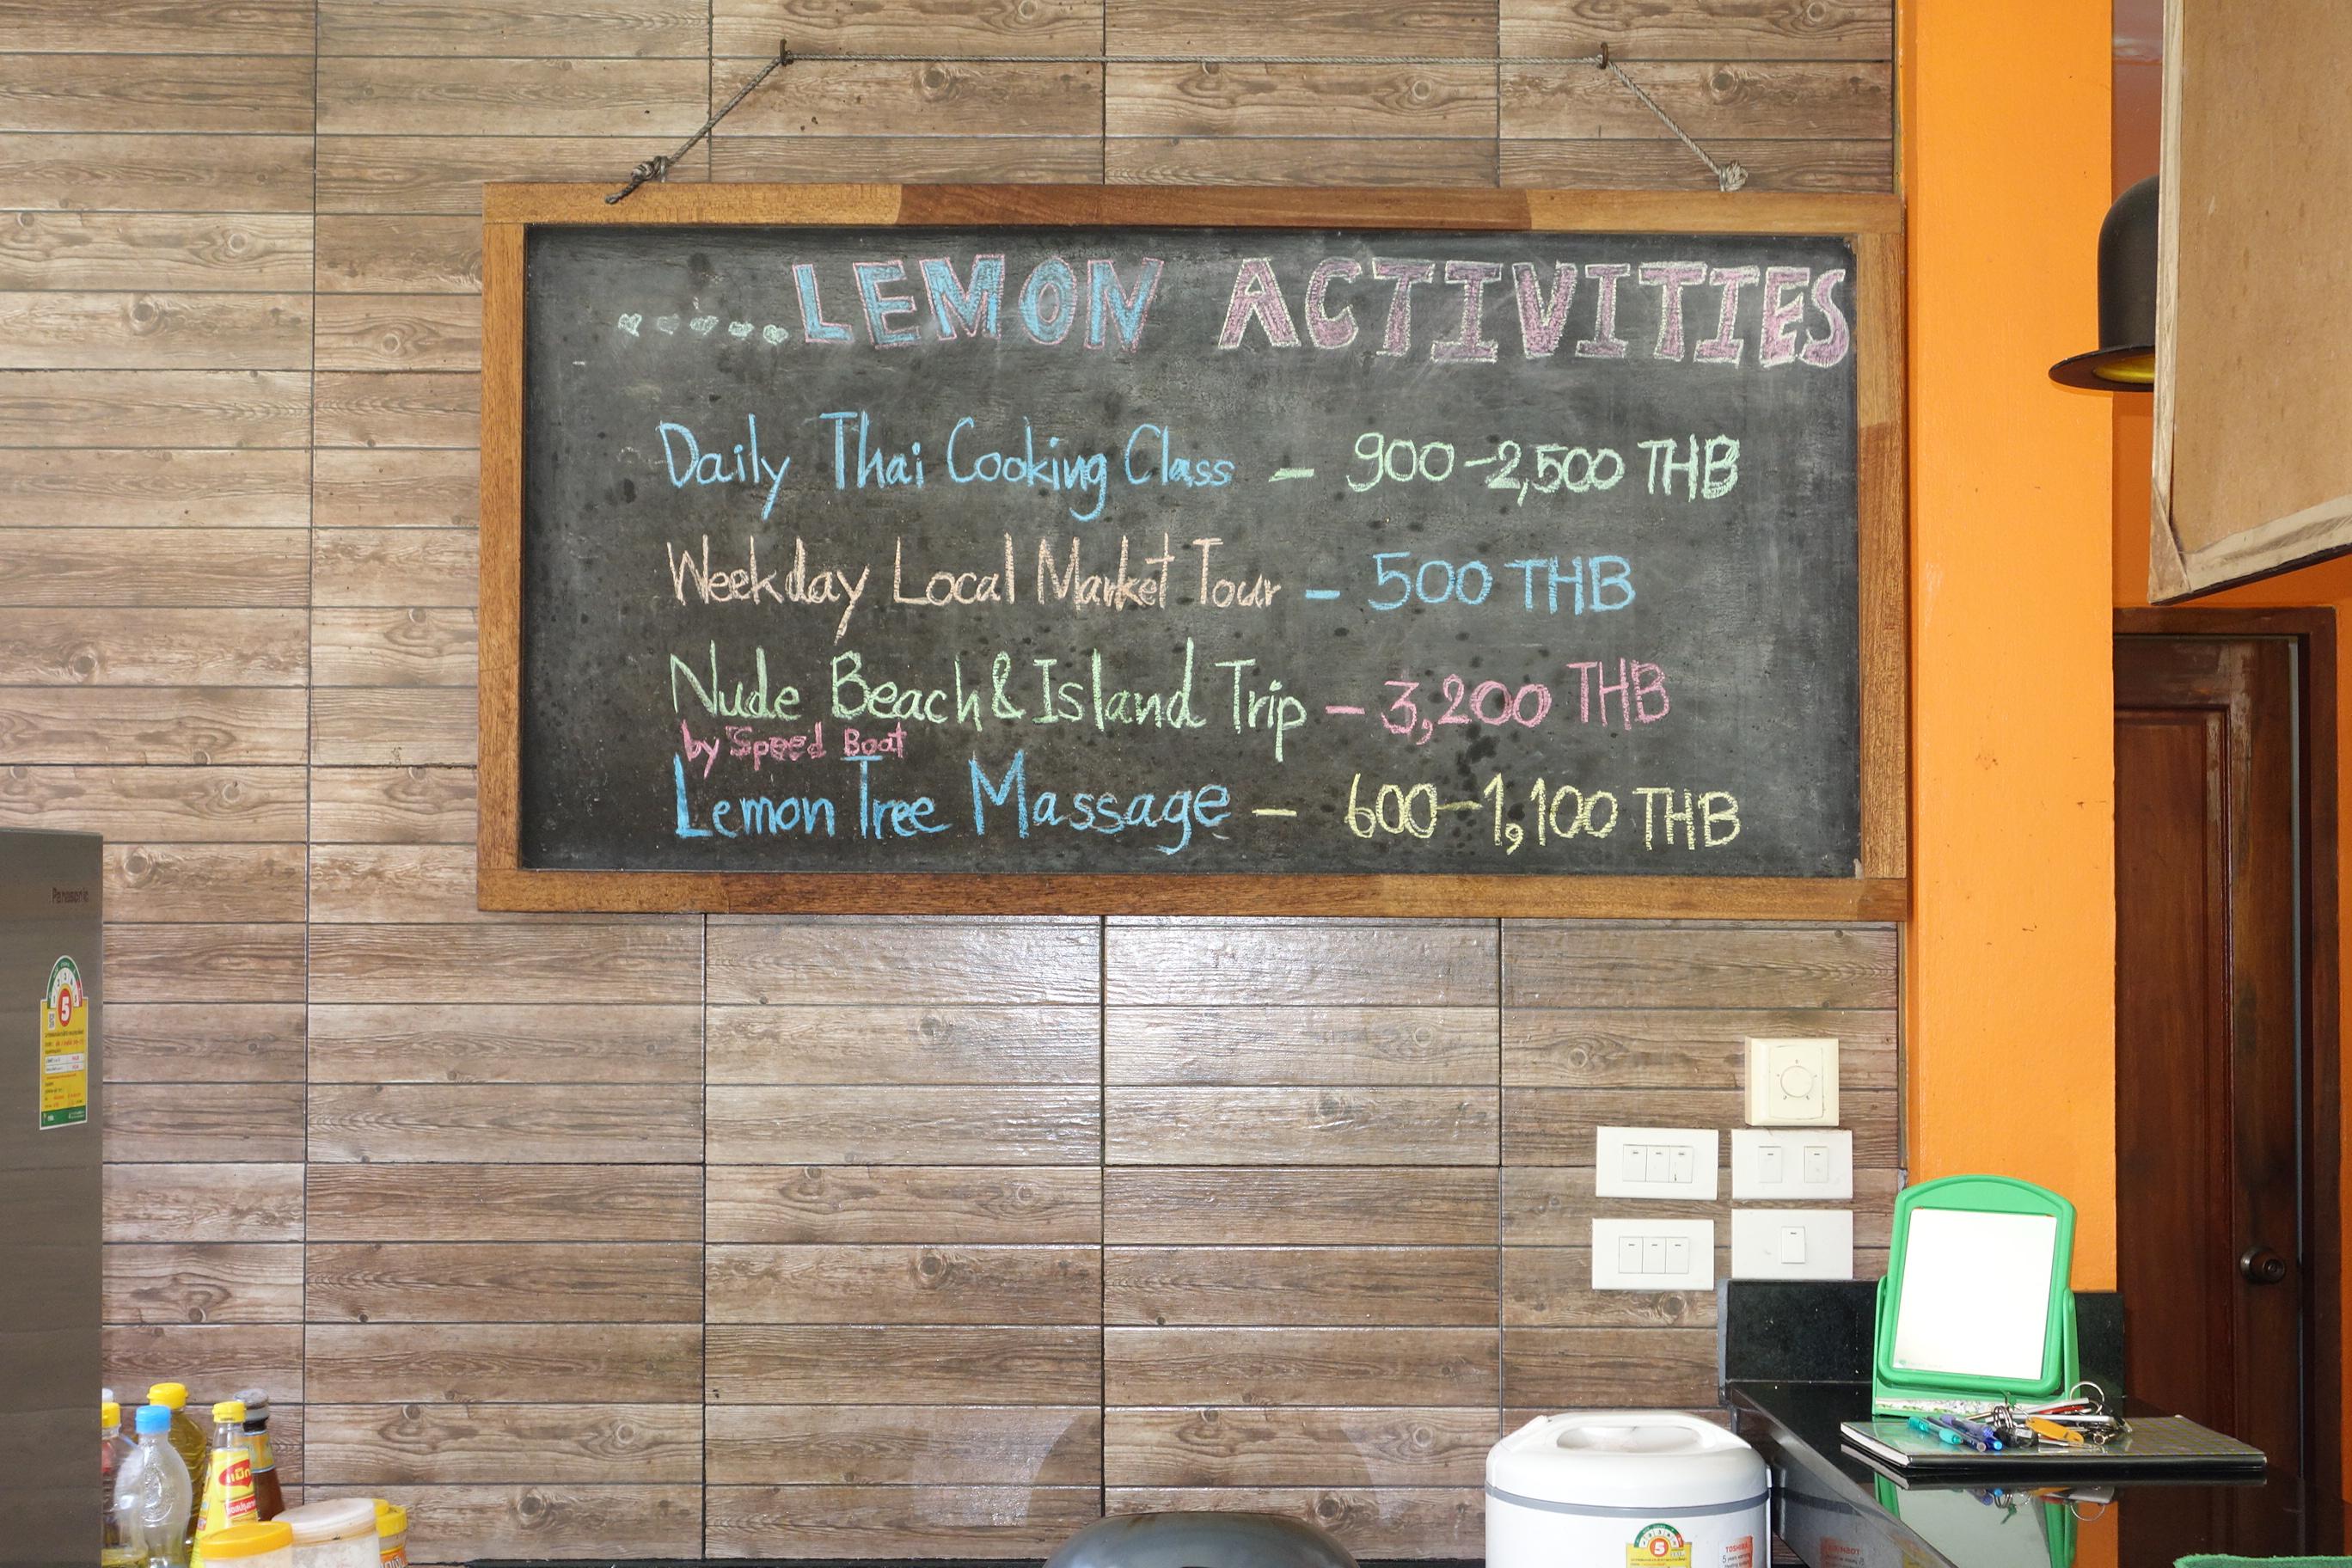 LEMON ACTIVITIES
Daily Thai Cooking Class - 900-2,500 THB
Weekday Local Market Tour - 500 THB
Nude Beach & Island Trip - 3,200 THB
by Speed Boat
Lemon Tree Massage - 600-1,100 THB
Panasonic
5
5
TOSHIBA